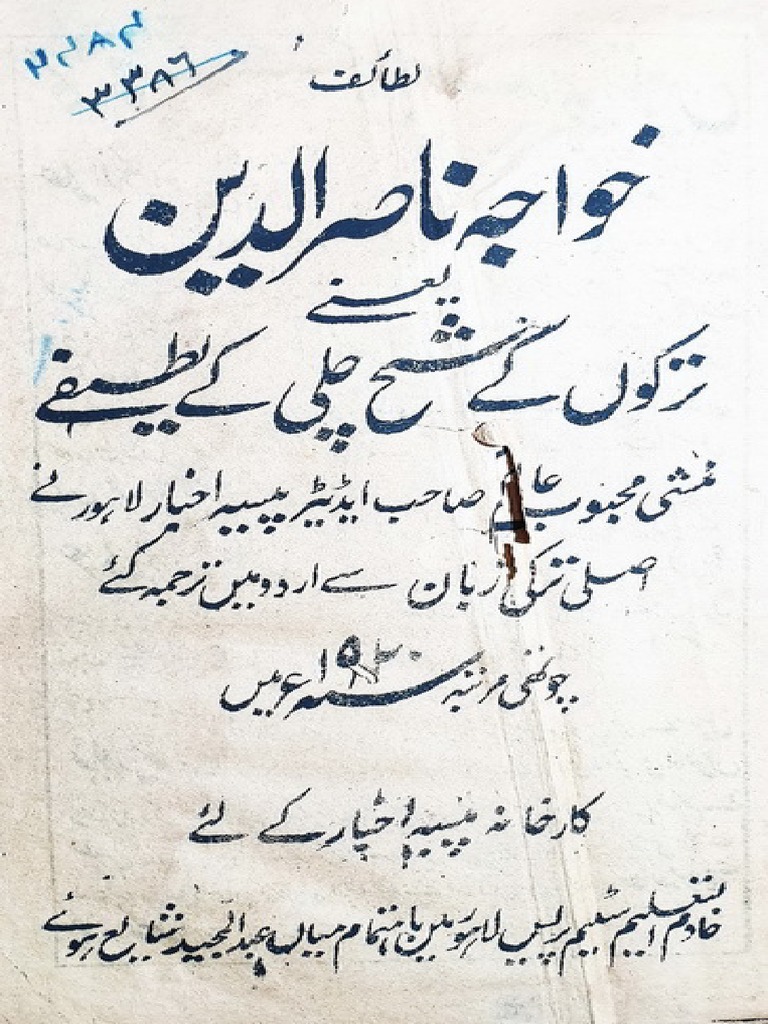 ۳۳۸۶
لطائف
خواجہ ناصر الدین
یعنے
ترکوں کے شیخ چلی کے لطیفے
منشی محبوب عالم صاحب ایڈیٹر پیسہ اخبار لاہور نے
اصلی ترکی زبان سے اردو میں ترجمہ کئے
چوتھی مرتبہ سنہ ء میں
کارخانہ پیسہ اخبار کے لئے
خادم التعلیم سٹیم پریس لاہور میں باہتمام میاں عبدالمجید شایع ہوئے